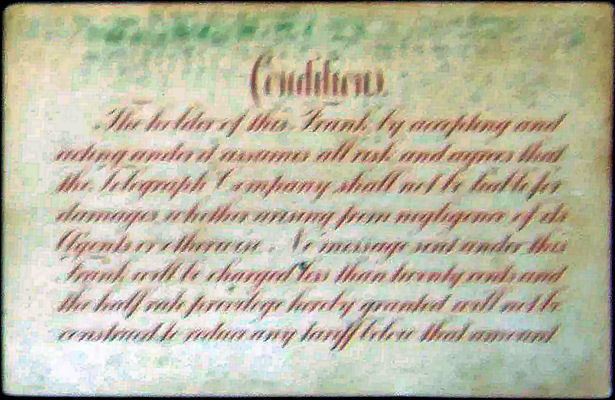 Conditions.
The holder of this Frank, by accepting and
acting under it assumes all risk and agrees that
the Telegraph Company shall not be liable for
damages whether arising from negligence of its
Agents or otherwise. No message sent under this
Frank will be charged less than twenty cents and
the half rate privilege hereby granted will not be
construed to reduce any tariff below that amount